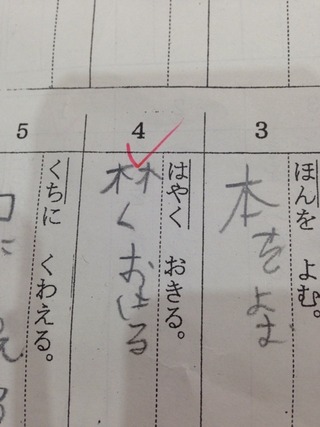 3
ほんを よむ。
本をよむ
4
はやく おきる。
林くおきる
5
くちに くわえる。